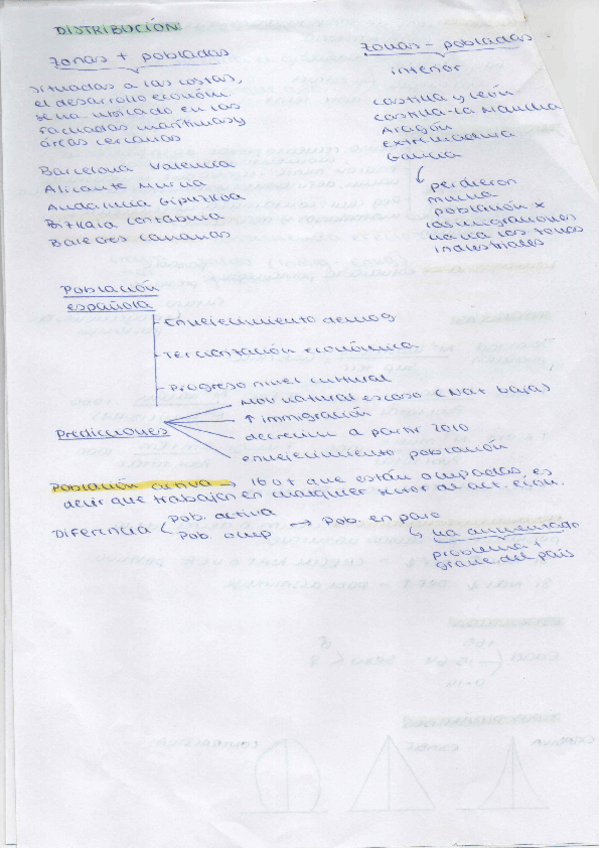 DISTRIBUCIÓN:
Zonas + pobladas
situadas a las costas,
el desarrollo económ.
se ha ubicado en las
fachadas marítimas y
áreas cercanas
Barcelona Valencia
Alicante Murcia
Andalucía Gipuzkoa
Bizkaia Cantabria
Baleares Canarias
Zonas - pobladas
interior
Castilla y León
Castilla-La Mancha
Aragón
Extremadura
Galicia
↳ perdieron
mucha
población x
las migraciones
hacia las zonas
industriales
Población
española
- Envejecimiento demog
- Terciarización económica
- Progreso nivel cultural
Predicciones
mov natural escaso (Nat baja)
↑ immigración
decrecim a partir 2010
envejecimiento población
Población activa → 16 o + que están ocupados, es
decir que trabajan en cualquier sector de act. econ.
Diferencia < Pob. activa
Pob. ocup
↔ Pob. en paro
↳ ha aumentado
problema +
grave del país